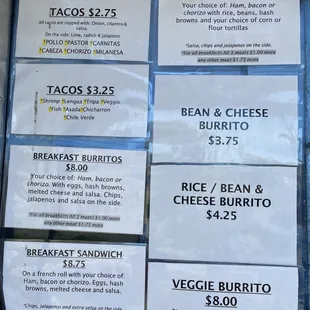 TACOS $2.75
All tacos are topped with: Onion, cilantro & salsa.
On the side: Lime, radish & jalapeno
*POLLO *PASTOR *CARNITAS
*CABEZA *CHORIZO *MILANESA
TACOS $3.25
*Shrimp *Lengua *Tripa *Veggie
*Fish *Asada *Chicharron
*Chile Verde
BREAKFAST BURRITOS
$8.00
Your choice of: Ham, bacon or
chorizo. With eggs, hash browns,
melted cheese and salsa. Chips,
jalapenos and salsa on the side.
*For all breakfasts All 3 meats $1.00 more
any other meat $1.75 more
BREAKFAST SANDWICH
$8.75
On a french roll with your choice of:
Ham, bacon or chorizo. Eggs, hash
browns, melted cheese and salsa.
*Chips, jalapenos and extra salsa on the side.
Your choice of: Ham, bacon or
chorizo with rice, beans, hash
browns and your choice of corn or
flour tortillas
*Salsa, chips and jalapenos on the side.
*For all breakfasts All 3 meats $1.00 more
any other meat $1.75 more
BEAN & CHEESE
BURRITO
$3.75
RICE / BEAN &
CHEESE BURRITO
$4.25
VEGGIE BURRITO
$8.00